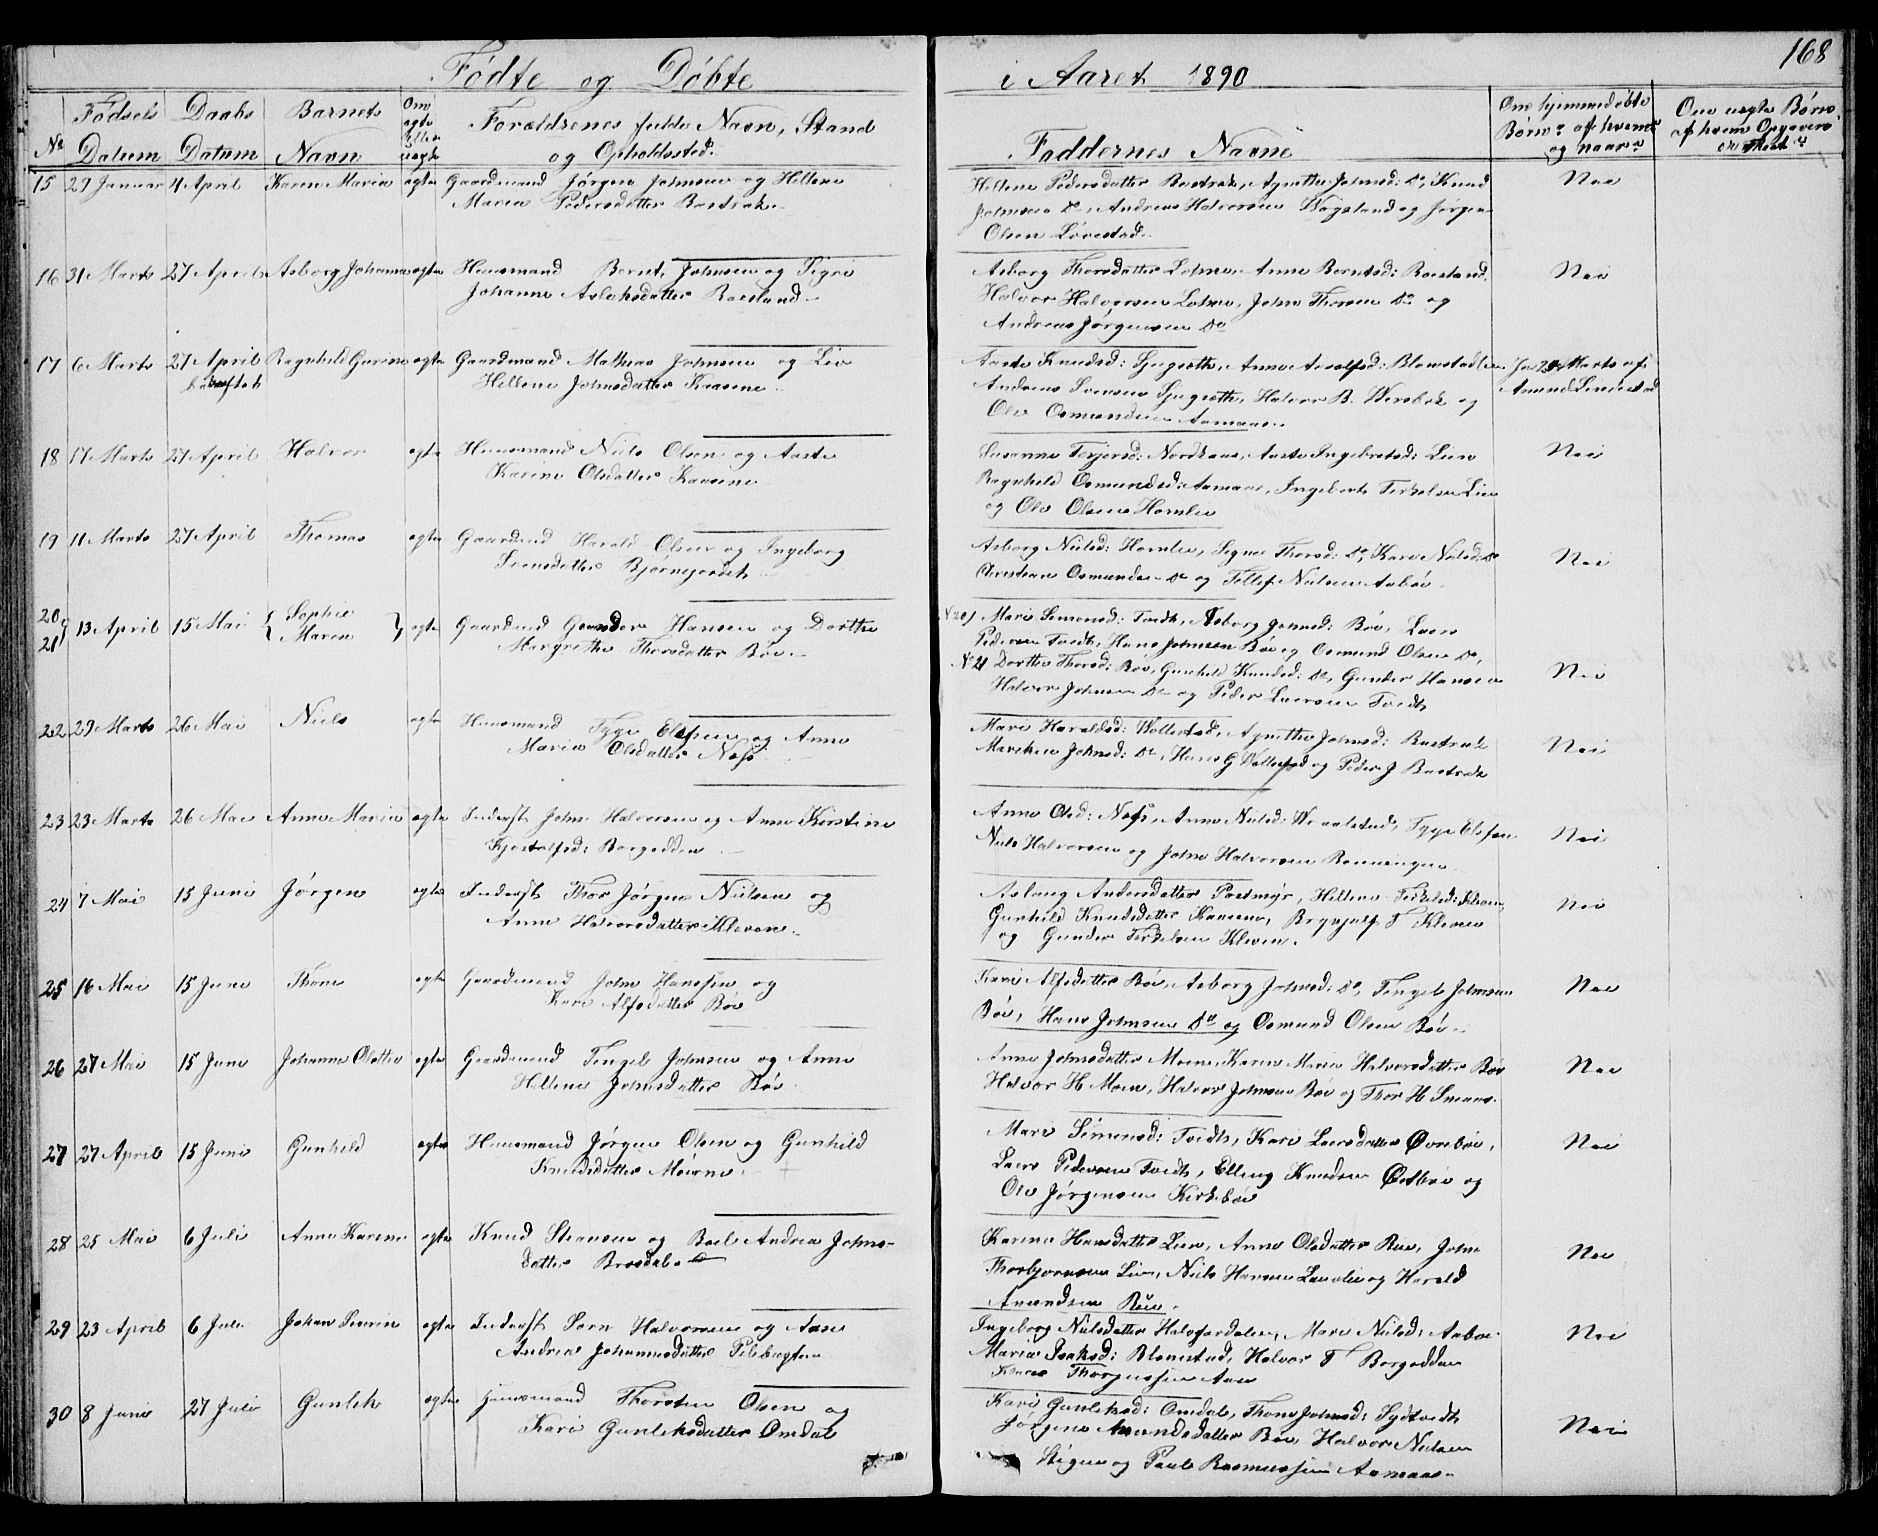 168
Fødte og Døbte i Aaret 1890
No
Fødsels Datum
Daabs Datum
Barnets Navn
Om ægte eller uægte
Forældrenes fulde Navn, Stand
og Opholdssted.
Faddernes Navne
Om hjemmedøbte Børn: af hvem og naar
Om uægte Børn,
15 29 Januar 4 April Karen Maria ægte Gaardmand Jørgen Johnsen og Hellene
Maria Pedersdatter Rustrak.
Hellene Pedersdatter Rustrak, Agnethe Johnsd: Do, Knud
Johnsen Do, Andreas Halvorsen Wegsland og Jørgen
Olsen Lövestad.
Nei
16 31 Marts 27 April Asborg Johanne ægte Huusmand Bernt Johnsen og Sigri
Johanne Aslaksdatter Roesland.
Asborg Thorsdatter Lohne, Anne Berntsd: Roesland,
Halvor Halvorsen Lohne, John Thorsen Do og
Andreas Jørgensen Do
Nei
17 6 Marts 27 April Ragnhild Gurine ægte Gaardmand Mathias Johnsen og Liv
Hellene Johnsdatter Kaasene.
Aaste Knudsd:
Andreas Svensen Halvor B. Wersbak og
Ole Osmundsen Aamaas.
Ja 24 Marts af
Amund Lindestad
18 17 Marts 27 April Halvor ægte Huusmand Niels Olsen og Aaste
Karine Olsdatter Kaasene
Susanne Terjersd: Nordkaas, Aaste Ingebretsd: Lien
Ragnhild Osmundsd: Aamaas, Ingebret Terkelsen Lien
og Ole Olsen Homlie
Nei
19 11 Marts 27 April Thomas ægte Gaardmd Harald Olsen og Ingeborg
Svensdatter
Asborg Nielsd: Homlie, Signe Thorsd: Do, Kari Nielsd: Do
Christian Osmundsen Do og Tellef Nielsen Aabøe.
Nei
20 21 13 April 15 Mai { Sophie
Maren } ægte Gaardmd Gunder Hansen og Dorthe
Margrethe Thorsdatter Bøe.
No 20) Mari Simonsd: Tvedt, Asborg Johnsd: Bøe, Laers
Pedersen Tvedt, Hans Johnsen Bøe og Osmund Olsen Do,
No 21 Dorthe Thorsd: Bøe, Gunhild Knudsd: Do, Gunder Hansen
Halvor Johnsen Do og Peder Laersen Tvedt
Nei
22 29 Marts 26 Mai Niels ægte Huusmand Tyge Elefsen og Anne
Maria Olsdatter Næs
Mari Haraldsd: Wollestad, Agnethe Johnsd: Rustrak
Marthea Johnsd: Do, Hans G Wollestad og Peder J Rustrak
Nei
23 23 Marts 26 Mai Anne Maria ægte Inderst John Halvorsen og Anne Kirstine
Kjostolfsd: Borgedden
Anne Olsd: Næs, Anne Nielsd: Tyge Elefsen
Niels Halvorsen og John Halvorsen Rønningen
Nei
24 7 Mai 15 Juni Jørgen ægte Inderst Thor Jørgen Nielsen og
Anne Halvorsdatter Kleven.
Aslaug Andersdatter Postmyr, Hellene Terkelsd: Kleven,
Gunhild Knudsdatter Kaasene, Brynjulf T Kleven
og Gunder Terkelsen Kleven.
Nei
25 16 Mai 15 Juni Thone ægte Gaardmand John Hanssen og
Kari Alfsdatter Bøe
Kari Alfsdatter Bøe, Asborg Johnsd: Do, Tengel Johnsen
Bøe, Hans Johnsen Do og Osmund Olsen Bøe.
Nei
26 27 Mai 15 Juni Johanne Olette ægte Gaardmand Tengel Johnsen og Anne
Hellene Johnsdatter Bøe.
Anne Johnsdatter Moene, Karen Maria Halvorsdatter Bøe
Halvor H Moen, Halvor Johnsen Bøe og Thor H Smaas.
Nei
27 27 April 15 Juni Gunhild ægte Huusmand Jørgen Olsen og Gunhild
Knudsdatter Moerne.
Mari Simonsd: Tvedt, Kari Laersdatter Øvrebøe,
Laers Pedersen Tvedt, Elling Knudsen Østbøe og
Ole Jørgensen Kirkebøe
Nei
28 25 Mai 6 Juli Anne Karine ægte Knud Steansen og Boel Andrea Johns-
datter Brosdal.
Karine Hansdatter Lien, Anne Olsdatter Rue, John
Thorbjørnsen Lien, Niels Hansen Lauvlie og Harald
Amundsen Rue.
Nei
29 23 April 6 Juli Johan Severin ægte Inderst Sørn Halvorsen og Aase
Andrea Johannesdatter
Ingeborg Nielsdatter Mari Nielsd: Aabøe
Maria Isaksd: Blomstad, Halvor T Borgedden
Thorgussen Aase
Nei
30 8 Juni 27 Juli Gunlek ægte Huusmand Thorsten Olsen og
Kari Gunleksdatter Omdal
Kari Gunleksd: Omdal, Thone Johnsd: Sydtvedt
Jørgine Amundsdatter Bøe, Halvor Nielsen
Stigen og Paul Rasmussen Aamaas.
Nei